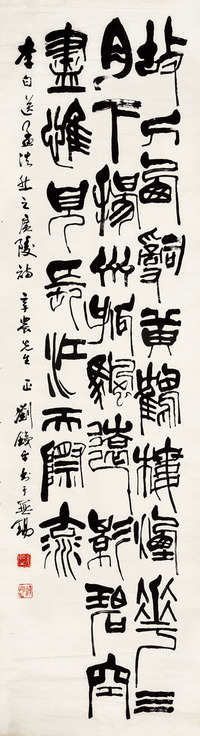 故人西辭黃鶴樓煙花三
月下揚州孤颿遠影碧空
盡惟見長江天際流
李白送孟浩然之廣陵詩 辛農先生 正 劉鐵平書于無錫